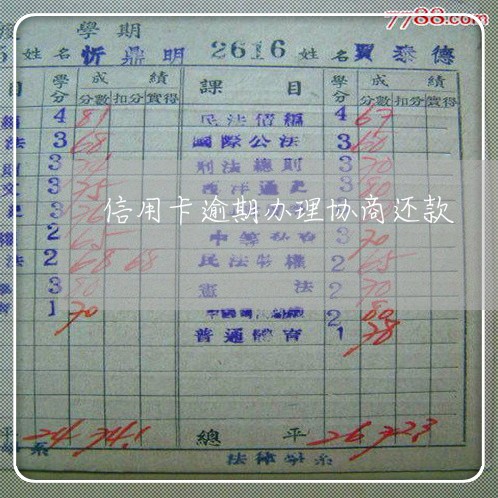 7788.com
學期
姓名 忻鼎明 2616 姓名 賈泰德
目 學分 成績 課目 學分 成績
分數 扣分 實得 分數 扣分 實得
4 81 民法債編 4 67
法 3 68 國際公法 3 60
3 刑法總則 3 70
3 75 西洋通史 3 80
3
信用卡逾期办理协商还款
2 65 3 70
法 2 68 68 民法物權 2 65
3 80 憲法 2 70
1 70 2 80
普通體育 1 78
平 24 74.1 總平 26 72.3
系 法律學系